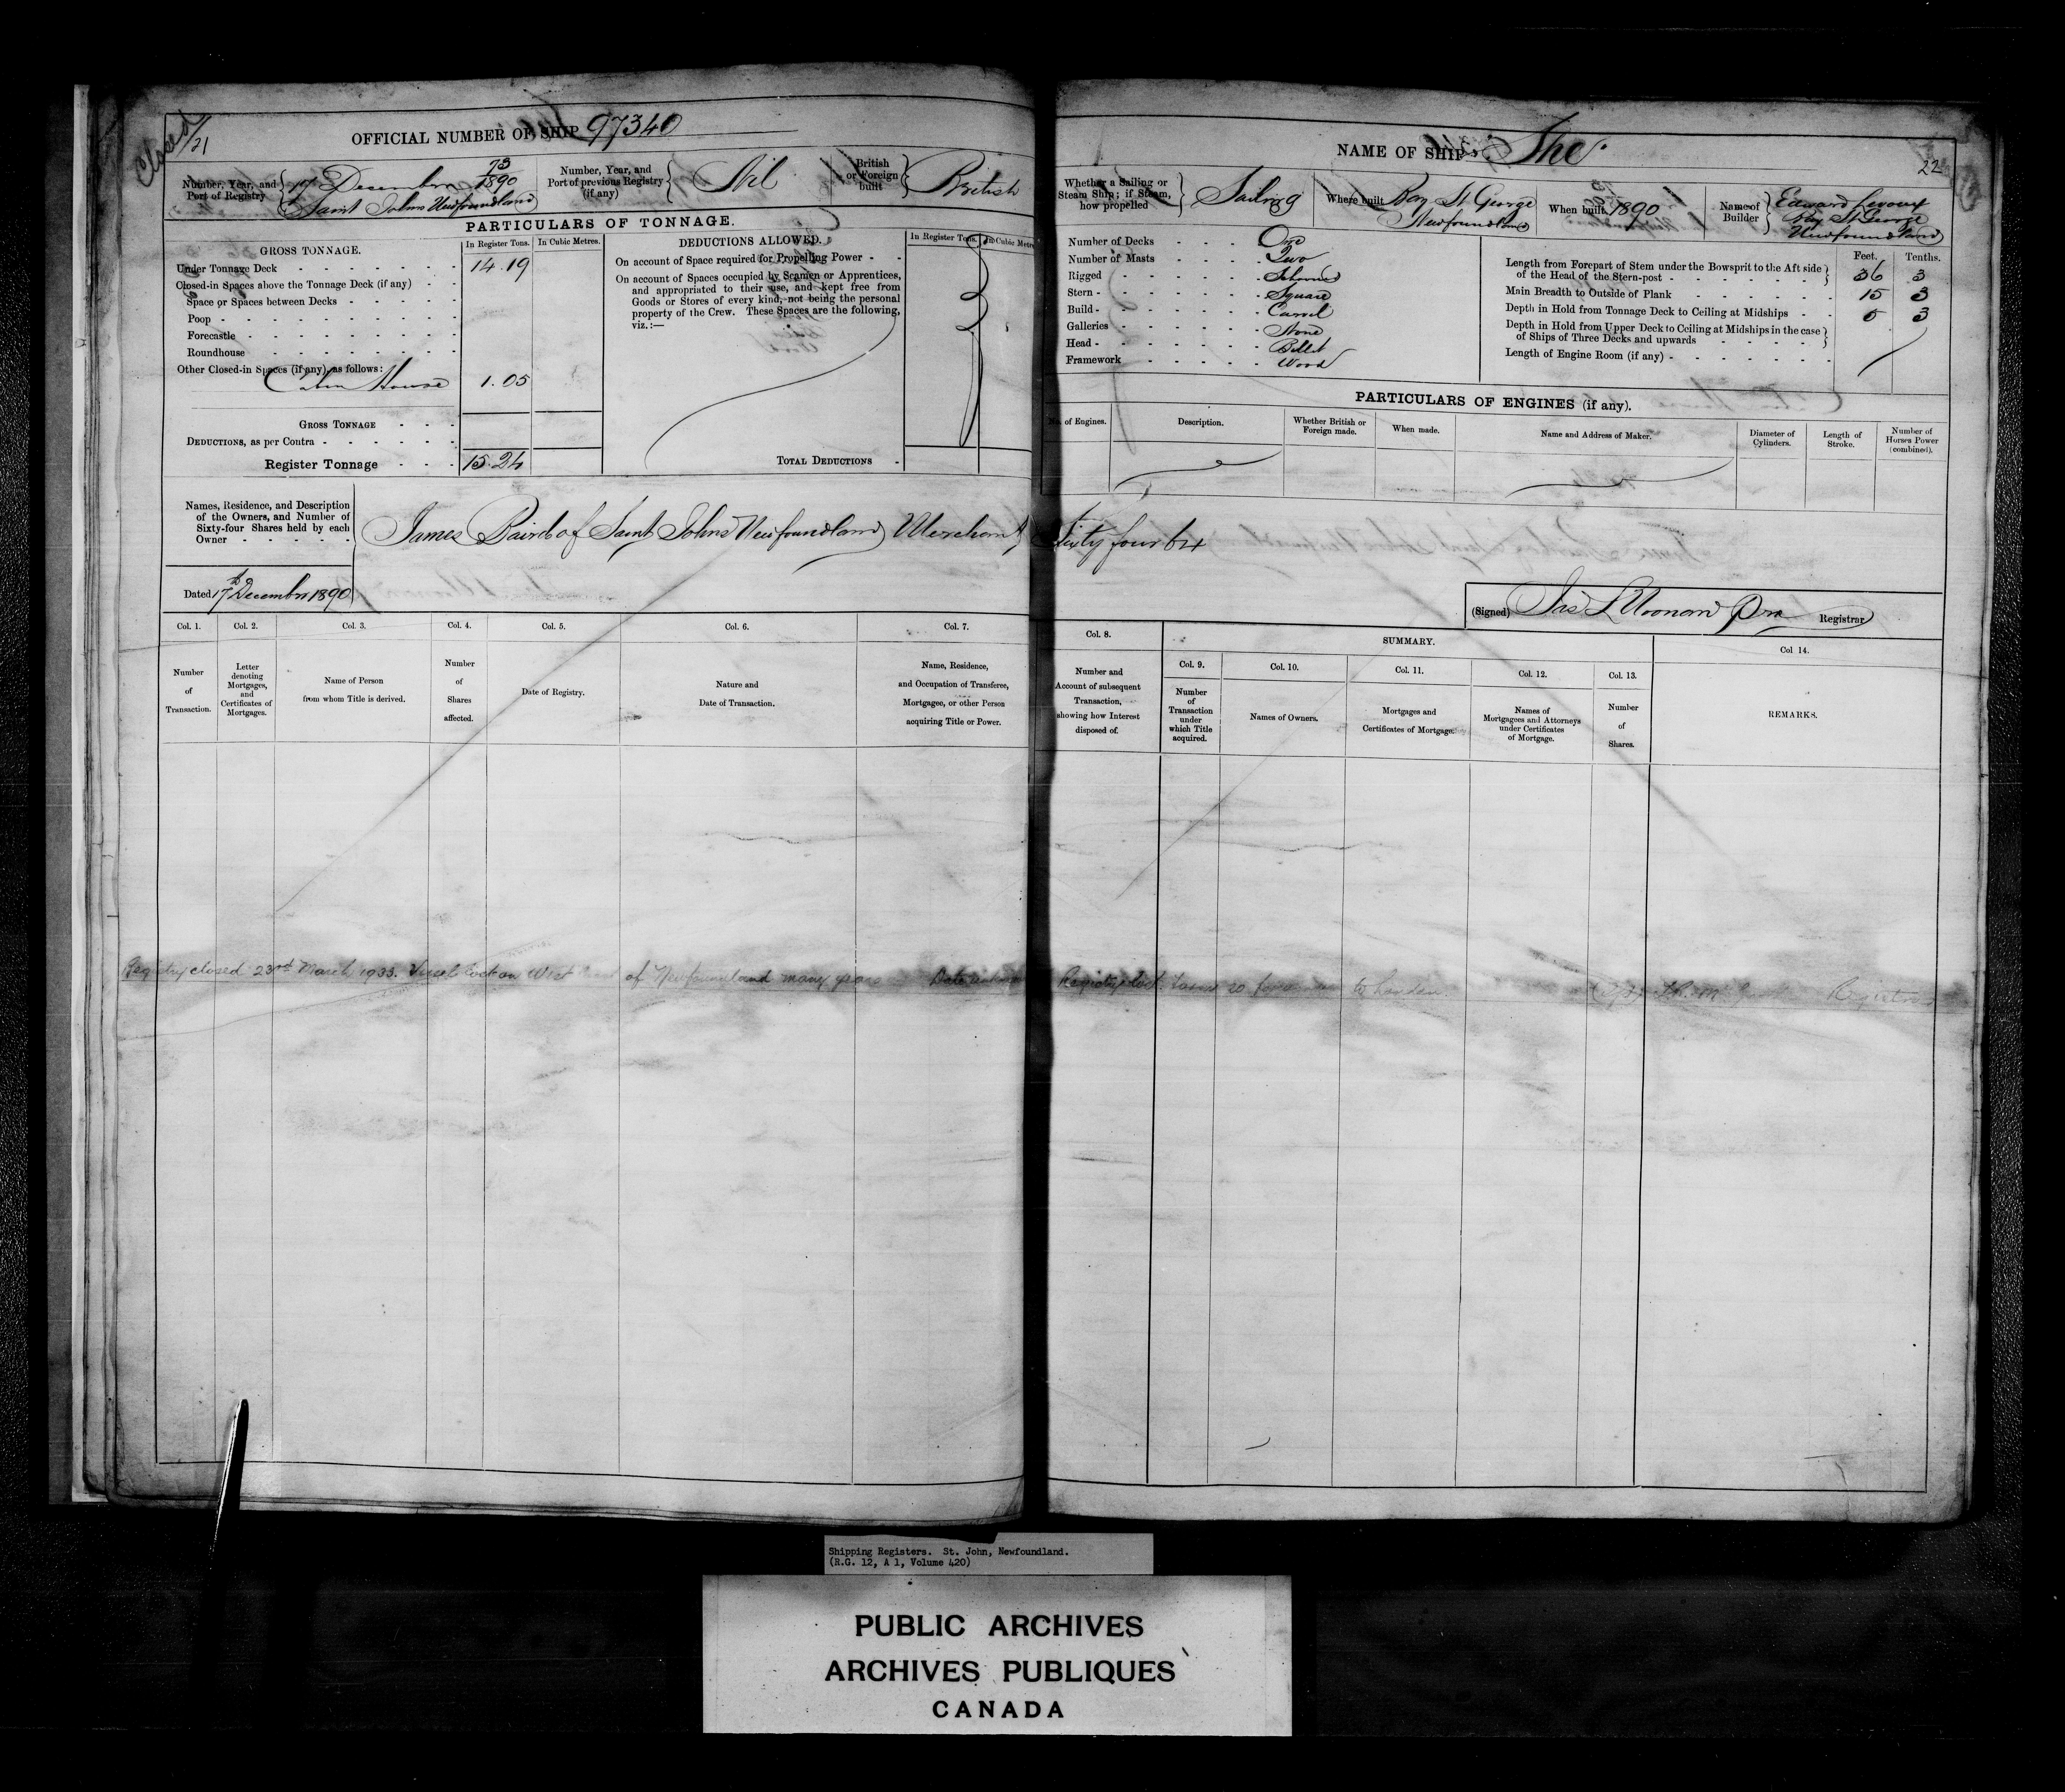 Closed
21
OFFICIAL NUMBER OF SHIP 97340
Number, Year, and Port of Registry 17 December 73/1890 Saint Johns Newfoundland
Number, Year, and Port of previous Registry (if any) Nil
British or Foreign built British
PARTICULARS OF TONNAGE.
GROSS TONNAGE. In Register Tons. In Cubic Metres.
Under Tonnage Deck 14.19
Closed-in Spaces above the Tonnage Deck (if any)
Space or Spaces between Decks
Poop
Forecastle
Roundhouse
Other Closed-in Spaces (if any), as follows:
Cabin House 1.05
GROSS TONNAGE
DEDUCTIONS, as per Contra
Register Tonnage 15.24
DEDUCTIONS ALLOWED. In Register Tons. In Cubic Metres
On account of Space required for Propelling Power
On account of Spaces occupied by Seamen or Apprentices,
and appropriated to their use, and kept free from
Goods or Stores of every kind, not being the personal
property of the Crew. These Spaces are the following,
viz.:—
TOTAL DEDUCTIONS
NAME OF SHIP She
22
Whether a Sailing or Steam Ship; if Steam, how propelled Sailing
Where built Bay St George Newfoundland
When built 1890
Name of Builder Edward Bay St George Newfoundland
Number of Decks One
Number of Masts Two
Rigged Schooner
Stern Square
Build Carvel
Galleries None
Head Billet
Framework Wood
Feet. Tenths.
Length from Forepart of Stem under the Bowsprit to the Aft side of the Head of the Stern-post 36 3
Main Breadth to Outside of Plank 15 3
Depth in Hold from Tonnage Deck to Ceiling at Midships 5 3
Depth in Hold from Upper Deck to Ceiling at Midships in the case of Ships of Three Decks and upwards
Length of Engine Room (if any)
PARTICULARS OF ENGINES (if any).
No. of Engines. Description. Whether British or Foreign made. When made. Name and Address of Maker. Diameter of Cylinders. Length of Stroke. Number of Horses Power (combined).
Names, Residence, and Description
of the Owners, and Number of
Sixty-four Shares held by each
Owner
James Baird of Saint Johns Newfoundland Merchant Sixty four 64
Dated 17th December 1890
(Signed) Jas L Noonan Registrar
Col. 1. Col. 2. Col. 3. Col. 4. Col. 5. Col. 6. Col. 7. Col. 8. SUMMARY. Col. 14.
Col. 9. Col. 10. Col. 11. Col. 12. Col. 13.
Number of Transaction.
Letter denoting Mortgages, and Certificates of Mortgages.
Name of Person from whom Title is derived.
Number of Shares affected.
Date of Registry.
Nature and Date of Transaction.
Name, Residence, and Occupation of Transferee, Mortgagee, or other Person acquiring Title or Power.
Number and Account of subsequent Transaction, showing how Interest disposed of.
Number of Transaction under which Title acquired.
Names of Owners.
Mortgages and Certificates of Mortgage.
Names of Mortgagees and Attorneys under Certificates of Mortgage.
Number of Shares.
REMARKS.
Registry closed 23rd March 1933. Vessel lost on West of Newfoundland many years Date unknown Registry lost. to London. Registrar
Shipping Registers. St. John, Newfoundland.
(R.G. 12, A 1, Volume 420)
PUBLIC ARCHIVES
ARCHIVES PUBLIQUES
CANADA